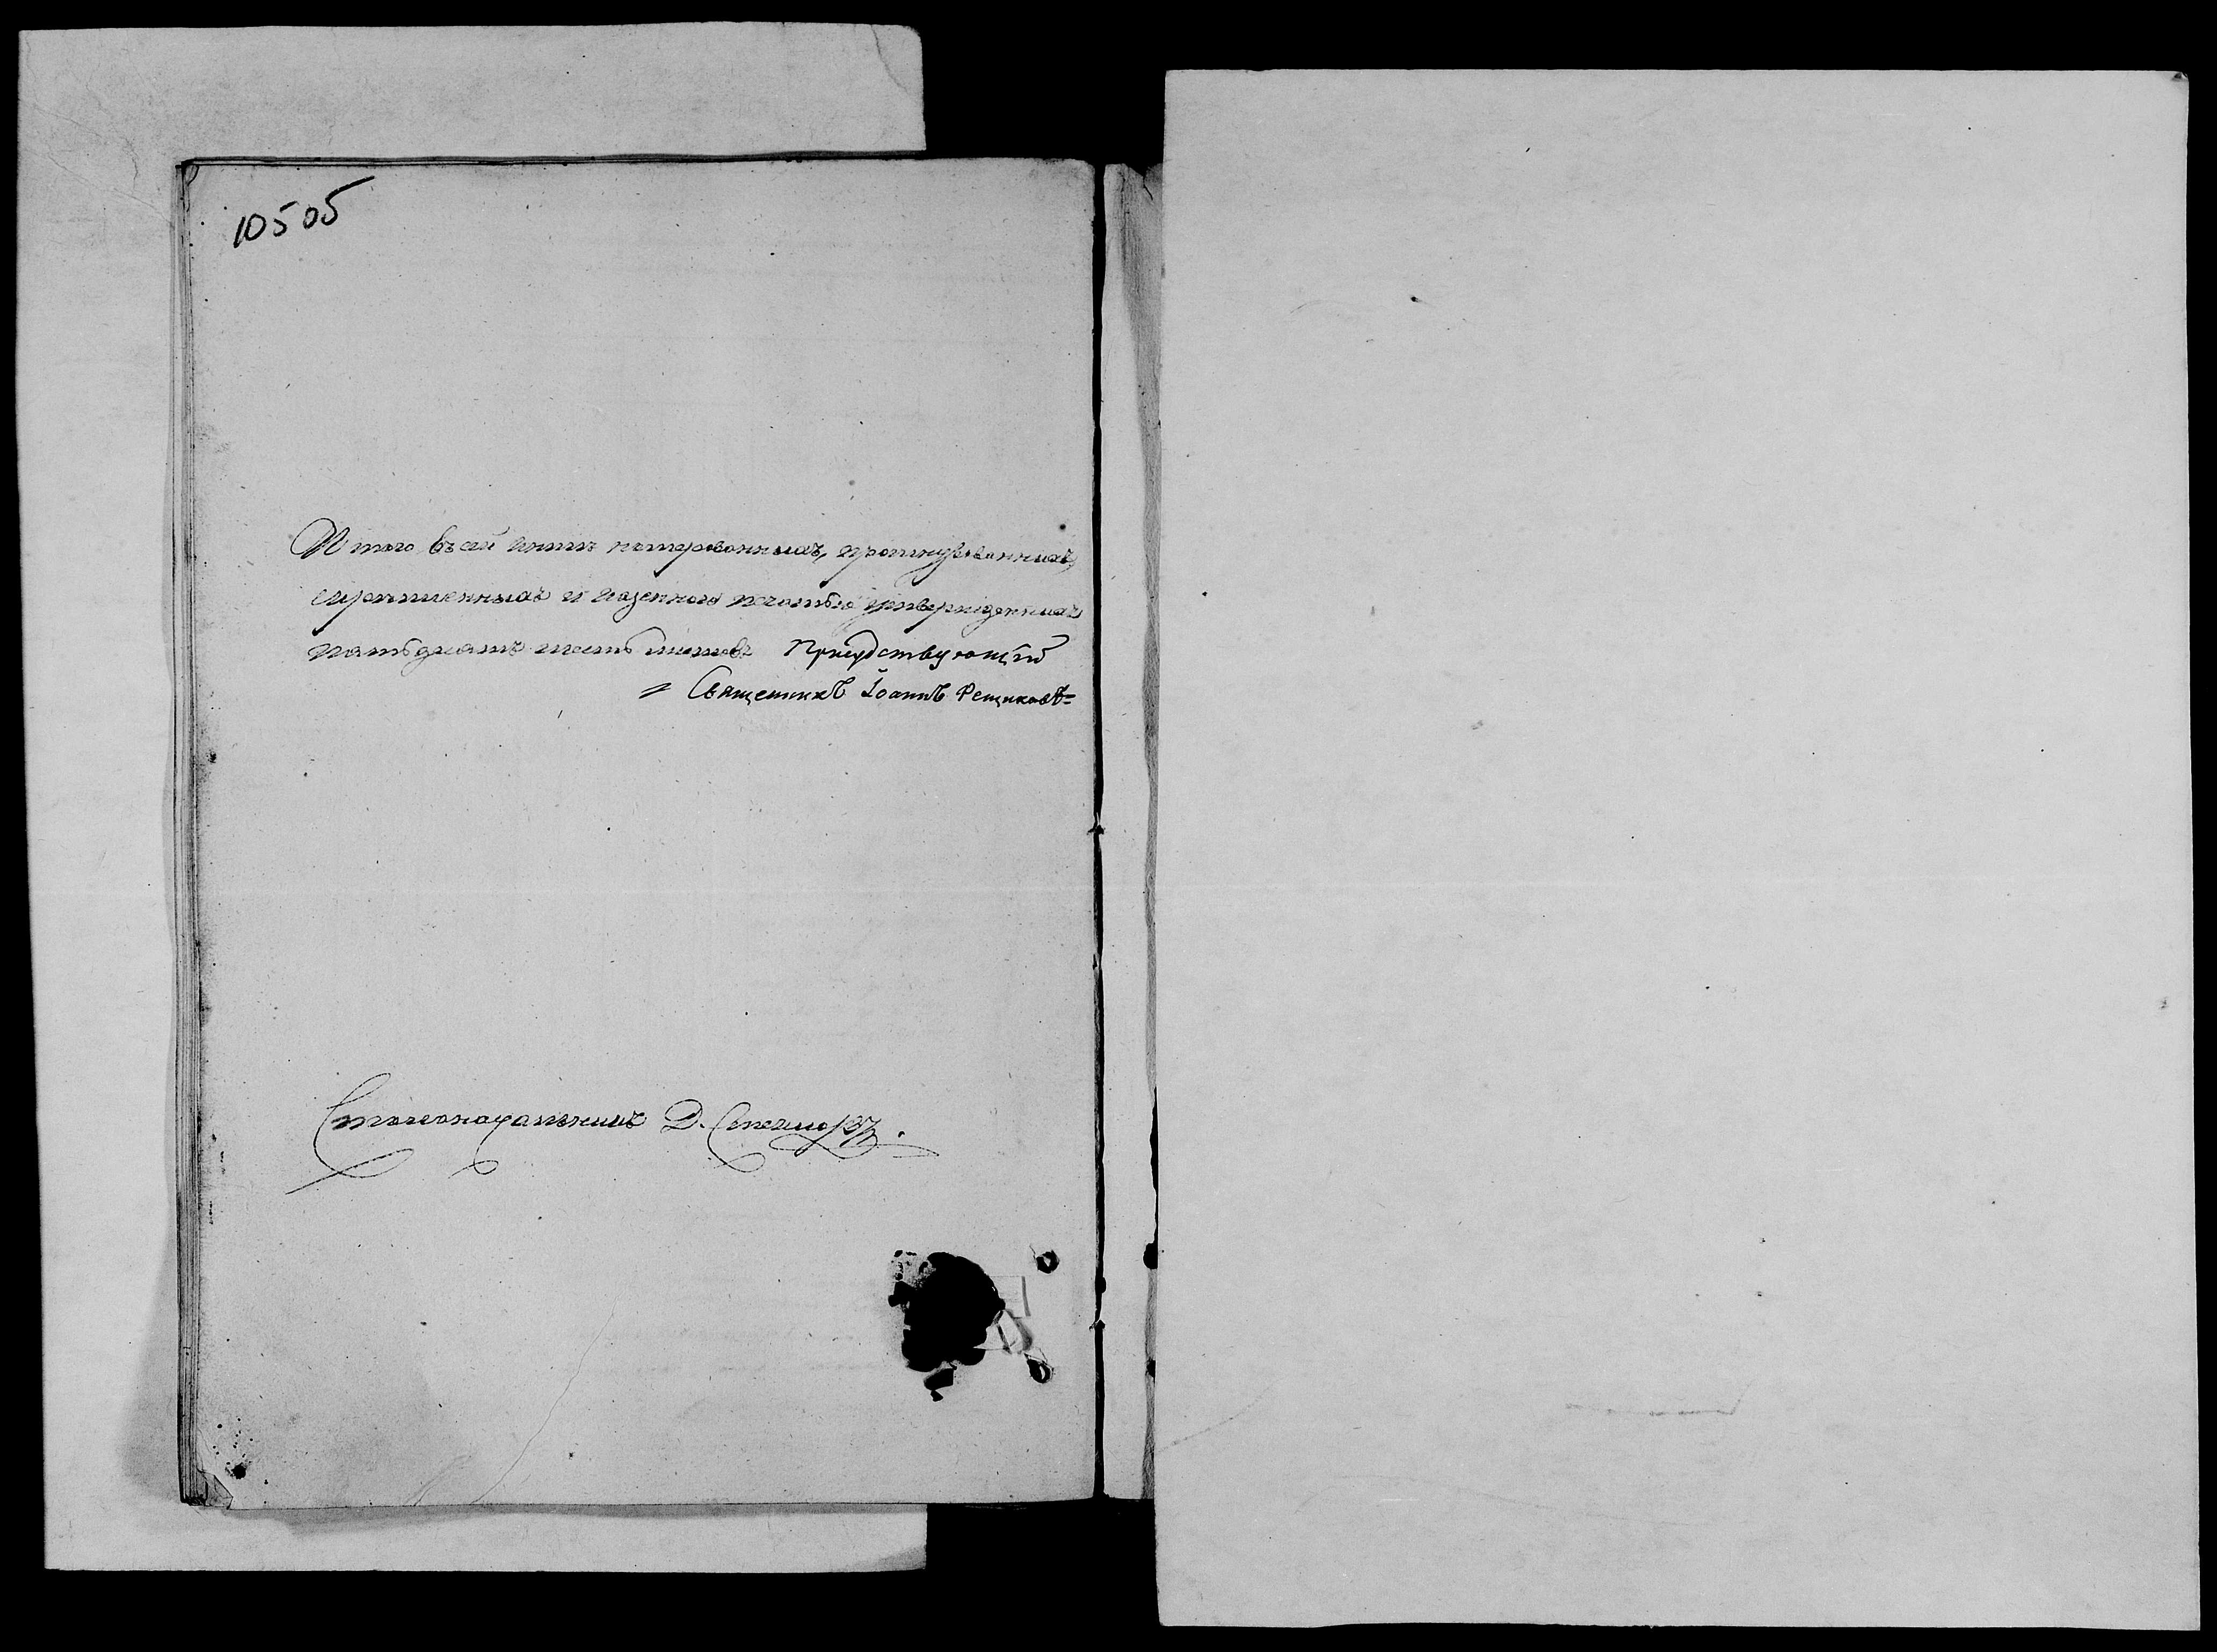 10505
Итого въ сей книгѣ номерованныхъ, прошнурованныхъ,
скрѣпленныхъ и казенною печатью утвержденныхъ
пятьдесятъ шесть листовъ Присудствующій
Священникъ Іоаннъ Рещиковъ
Столоначальникъ Д.